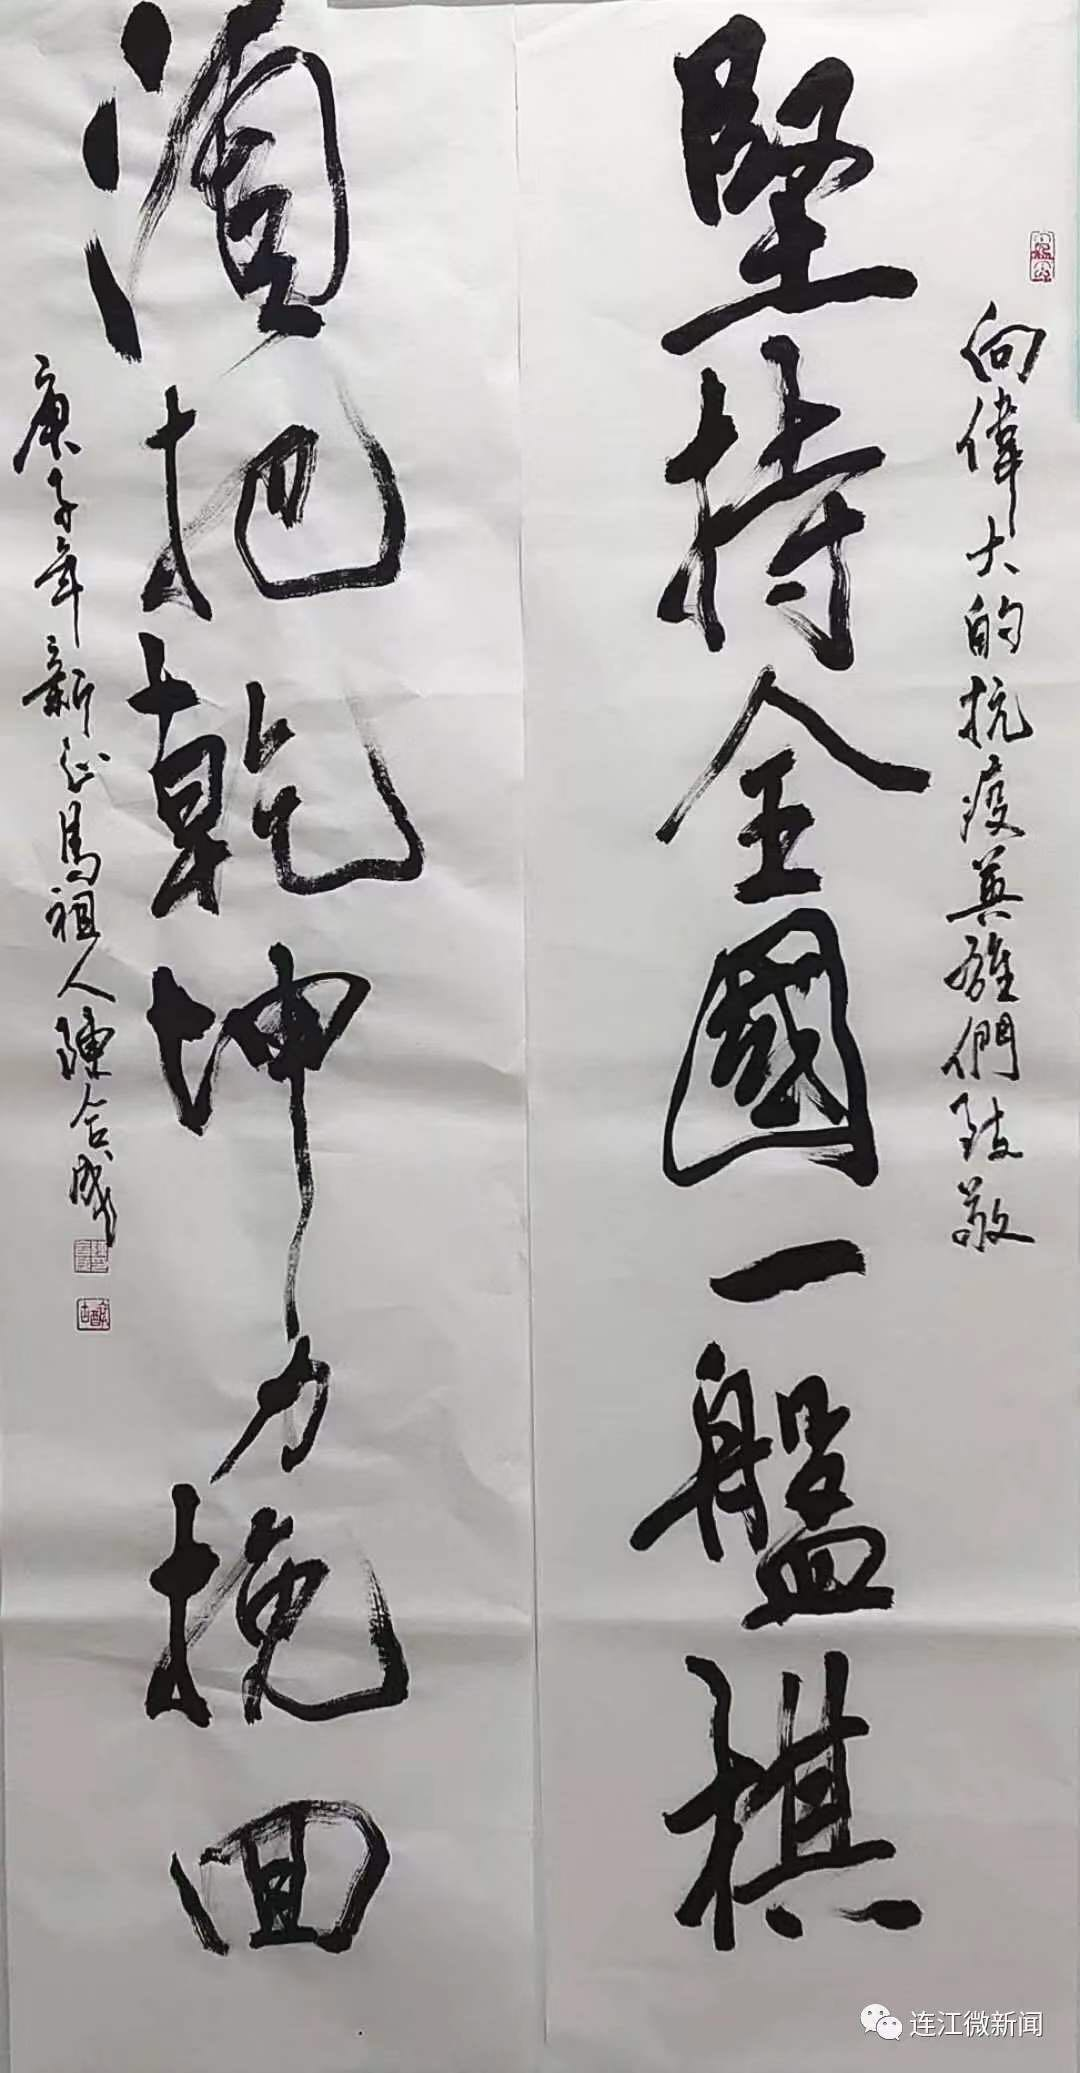 向偉大的抗疫英雄們致敬
堅持全國一盤棋
須把乾坤力挽回
庚子年新正馬祖人陳合成
连江微新闻